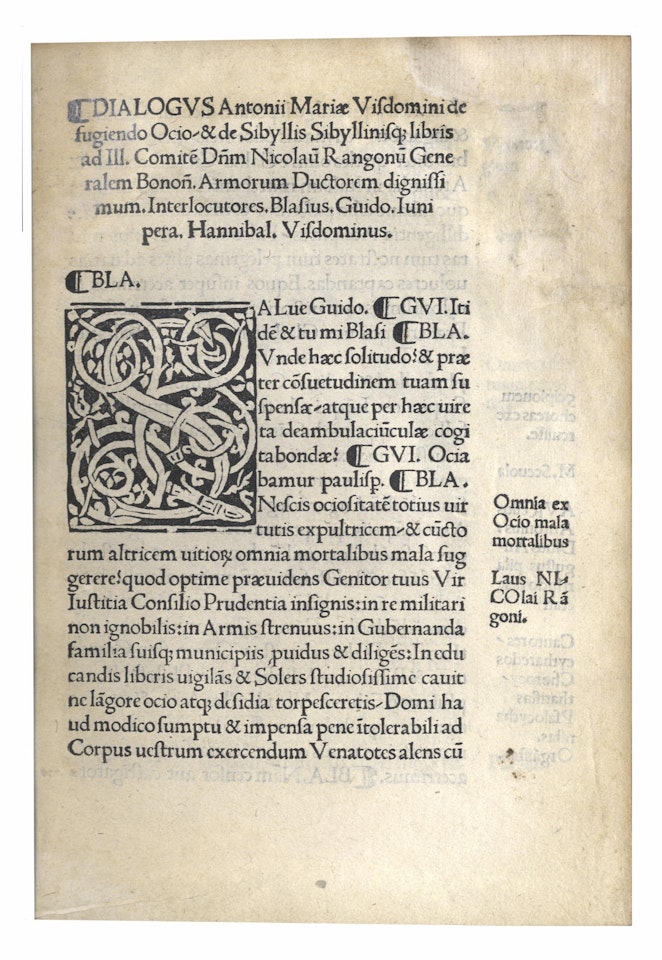 ⸿DIALOGVS Antonii Mariæ Viſdomini de
fugiendo Ocio⸗& de Sibyllis Sibylliniſq; libris
ad Ill. Comitē Dn̄m Nicolaū Rangonū Gene
ralem Bonoñ. Armorum Ductorem digniſſi
mum. Interlocutores. Blaſius. Guido. Iuni
pera. Hannibal. Viſdominus.
⸿BLA.
SALue Guido. ⸿GVI. Iti
dē & tu mi Blaſi ⸿BLA.
Vnde hæc ſolitudo? & præ
ter cōſuetudinem tuam ſu
ſpenſæ⸗atque per hæc uire
ta deambulaciūculæ cogi
tabondæ? ⸿GVI. Ocia
bamur pauliſp. ⸿BLA.
Neſcis ocioſitatē totius uir
tutis expultricem⸗& cūcto
rum altricem uitioꝝ omnia mortalibus mala ſug
gerere? quod optime præuidens Genitor tuus Vir
Iuſtitia Conſilio Prudentia inſignis: in re militari
non ignobilis: in Armis ſtrenuus: in Gubernanda
familia ſuiſq; municipiis ꝓuidus & diligēs: In edu
candis liberis uigilās & Solers ſtudioſiſſime cauit
ne lāgore ocio atq; deſidia torpeſceretis⸗Domi ha
ud modico ſumptu & impenſa pene ītolerabili ad
Corpus ueſtrum exercendum Venatotes alens cū
Omnia ex
Ocio mala
mortalibus
Laus NI⸗
COlai Rā
goni.